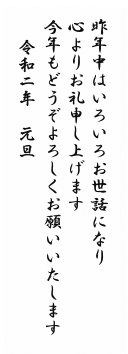 昨年中はいろいろお世話になり
心よりお礼申し上げます
今年もどうぞよろしくお願いいたします
令和二年　元旦